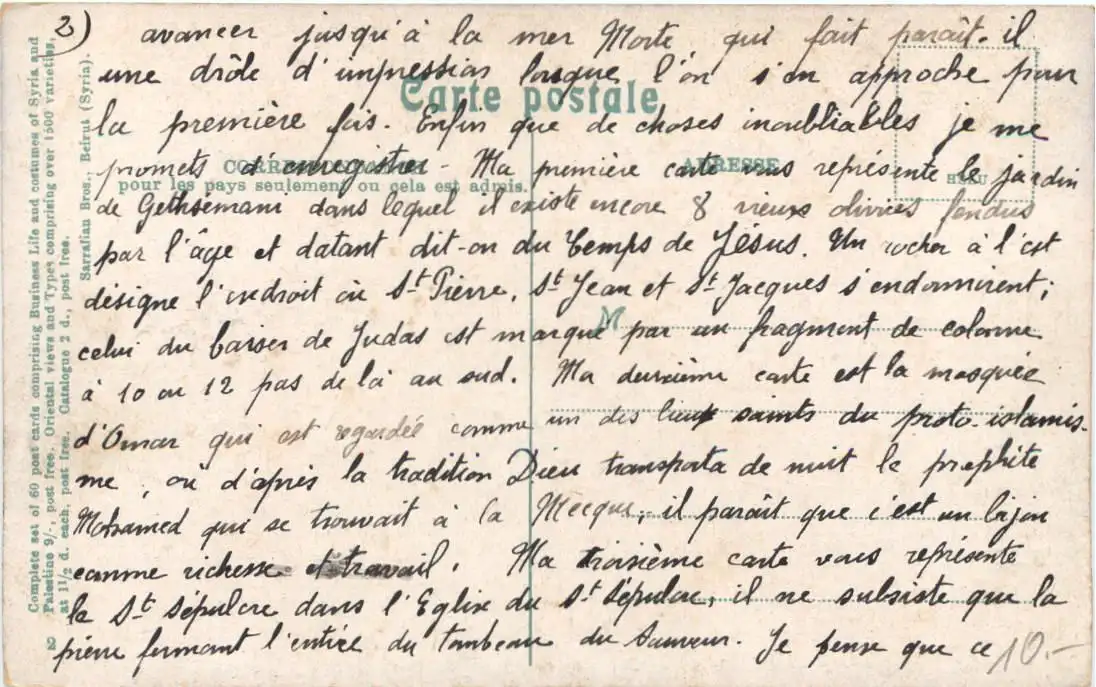 2)
avancer jusqu'à la mer Morte, qui fait paraît-il
une drôle d'impression lorsque l'on s'en approche pour
Carte postale
la première fois. Enfin que de choses inoubliables je me
promets d'enregistrer - Ma première carte vous représente le jardin
CORRESPONDANCE
ADRESSE
pour les pays seulement ou cela est admis.
de Gethsemani dans lequel il existe encore 8 vieux oliviers fendus
par l'âge et datant dit-on du temps de Jésus. Un rocher à l'est
désigne l'endroit où St Pierre, St Jean et St Jacques s'endormirent;
M
celui du baiser de Judas est marqué par un fragment de colonne
à 10 ou 12 pas de là au sud. Ma deuxième carte est la mosquée
d'Omar qui est regardée comme un des lieux saints du proto-islamis-
me, où d'après la tradition Dieu transporta de nuit le prophète
Mohamed qui se trouvait à la Mecque, il paraît que c'est un bijou
comme richesse et travail. Ma troisième carte vous représente
le St Sépulcre dans l'Eglise du St Sépulcre, il ne subsiste que la
pierre fermant l'entrée du tombeau du Sauveur. Je pense que ce
10.-
Complete set of 60 post cards comprising Business Life and costumes of Syria and
Palestine 9/-, post free. Oriental views and Types comprising over 1500 varieties,
at 1 1/2 d. each, post free. Catalogue 2 d., post free.
Sarrafian Bros., Beirut (Syria).